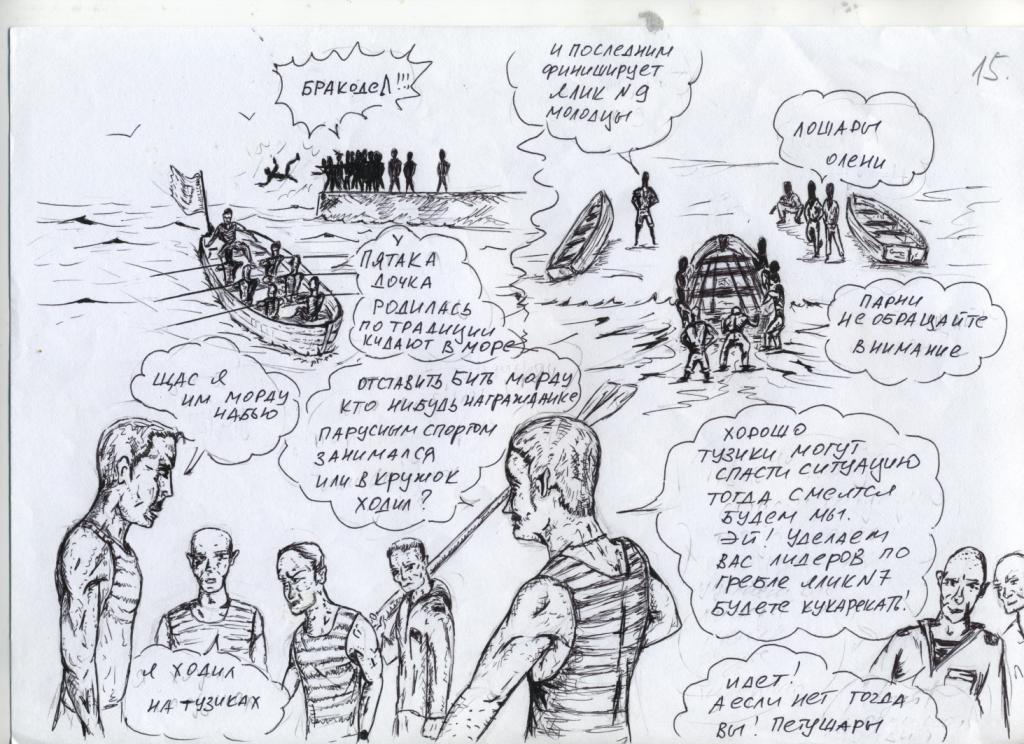 15.
БРАКОДЕЛ!!!
И ПОСЛЕДНИМ
ФИНИШИРУЕТ
ЯЛИК №9
МОЛОДЦЫ
ЛОШАРЫ
ОЛЕНИ
У
ПЯТАКА
ДОЧКА
РОДИЛАСЬ
ПО ТРАДИЦИИ
КИДАЮТ В МОРЕ
ПАРНИ
НЕ ОБРАЩАЙТЕ
ВНИМАНИЕ
ЩАС Я
ИМ МОРДУ
НАБЬЮ
ОТСТАВИТЬ БИТЬ МОРДУ
КТО НИБУДЬ НАГРАЖДАНКЕ
ПАРУСНЫМ СПОРТОМ
ЗАНИМАЛСЯ
ИЛИ В КРУЖОК
ХОДИЛ?
Я ХОДИЛ
НА ТУЗИКАХ
ХОРОШО
ТУЗИКИ МОГУТ
СПАСТИ СИТУАЦИЮ
ТОГДА СМЕЯТСЯ
БУДЕМ МЫ.
ЭЙ! УДЕЛАЕМ
ВАС ЛИДЕРОВ ПО
ГРЕБЛЕ ЯЛИК №7
БУДЕТЕ КУКАРЕКАТЬ!
ИДЕТ!
А ЕСЛИ НЕТ ТОГДА
ВЫ! ПЕТУШАРЫ